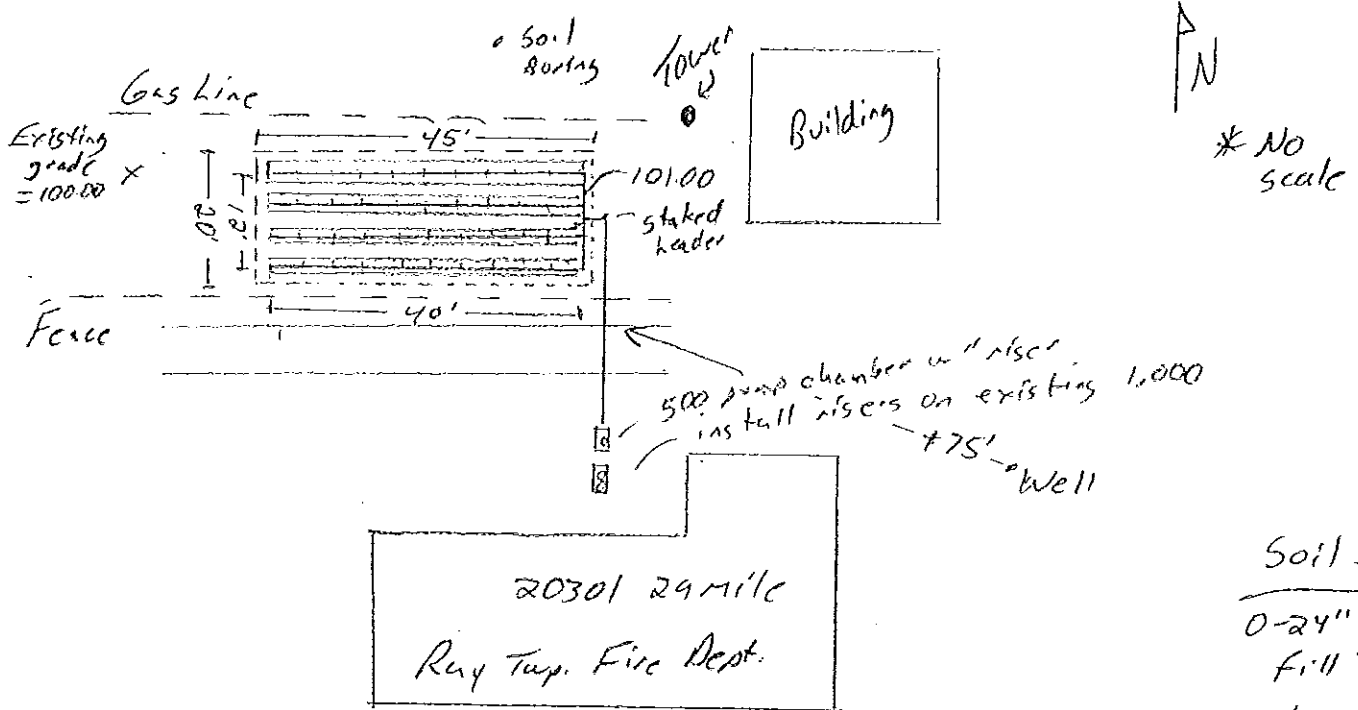 N
* No
scale
Soil
Boring
Tower
Gas Line
Building
Existing
grade
= 100.00 X
45'
101.00
staked
header
20'
12'
40'
Fence
500 pump chamber w/ riser
install risers on existing 1,000
+75'
Well
20301 29 mile
Ray Twp. Fire Dept.
Soil
0-24"
fill